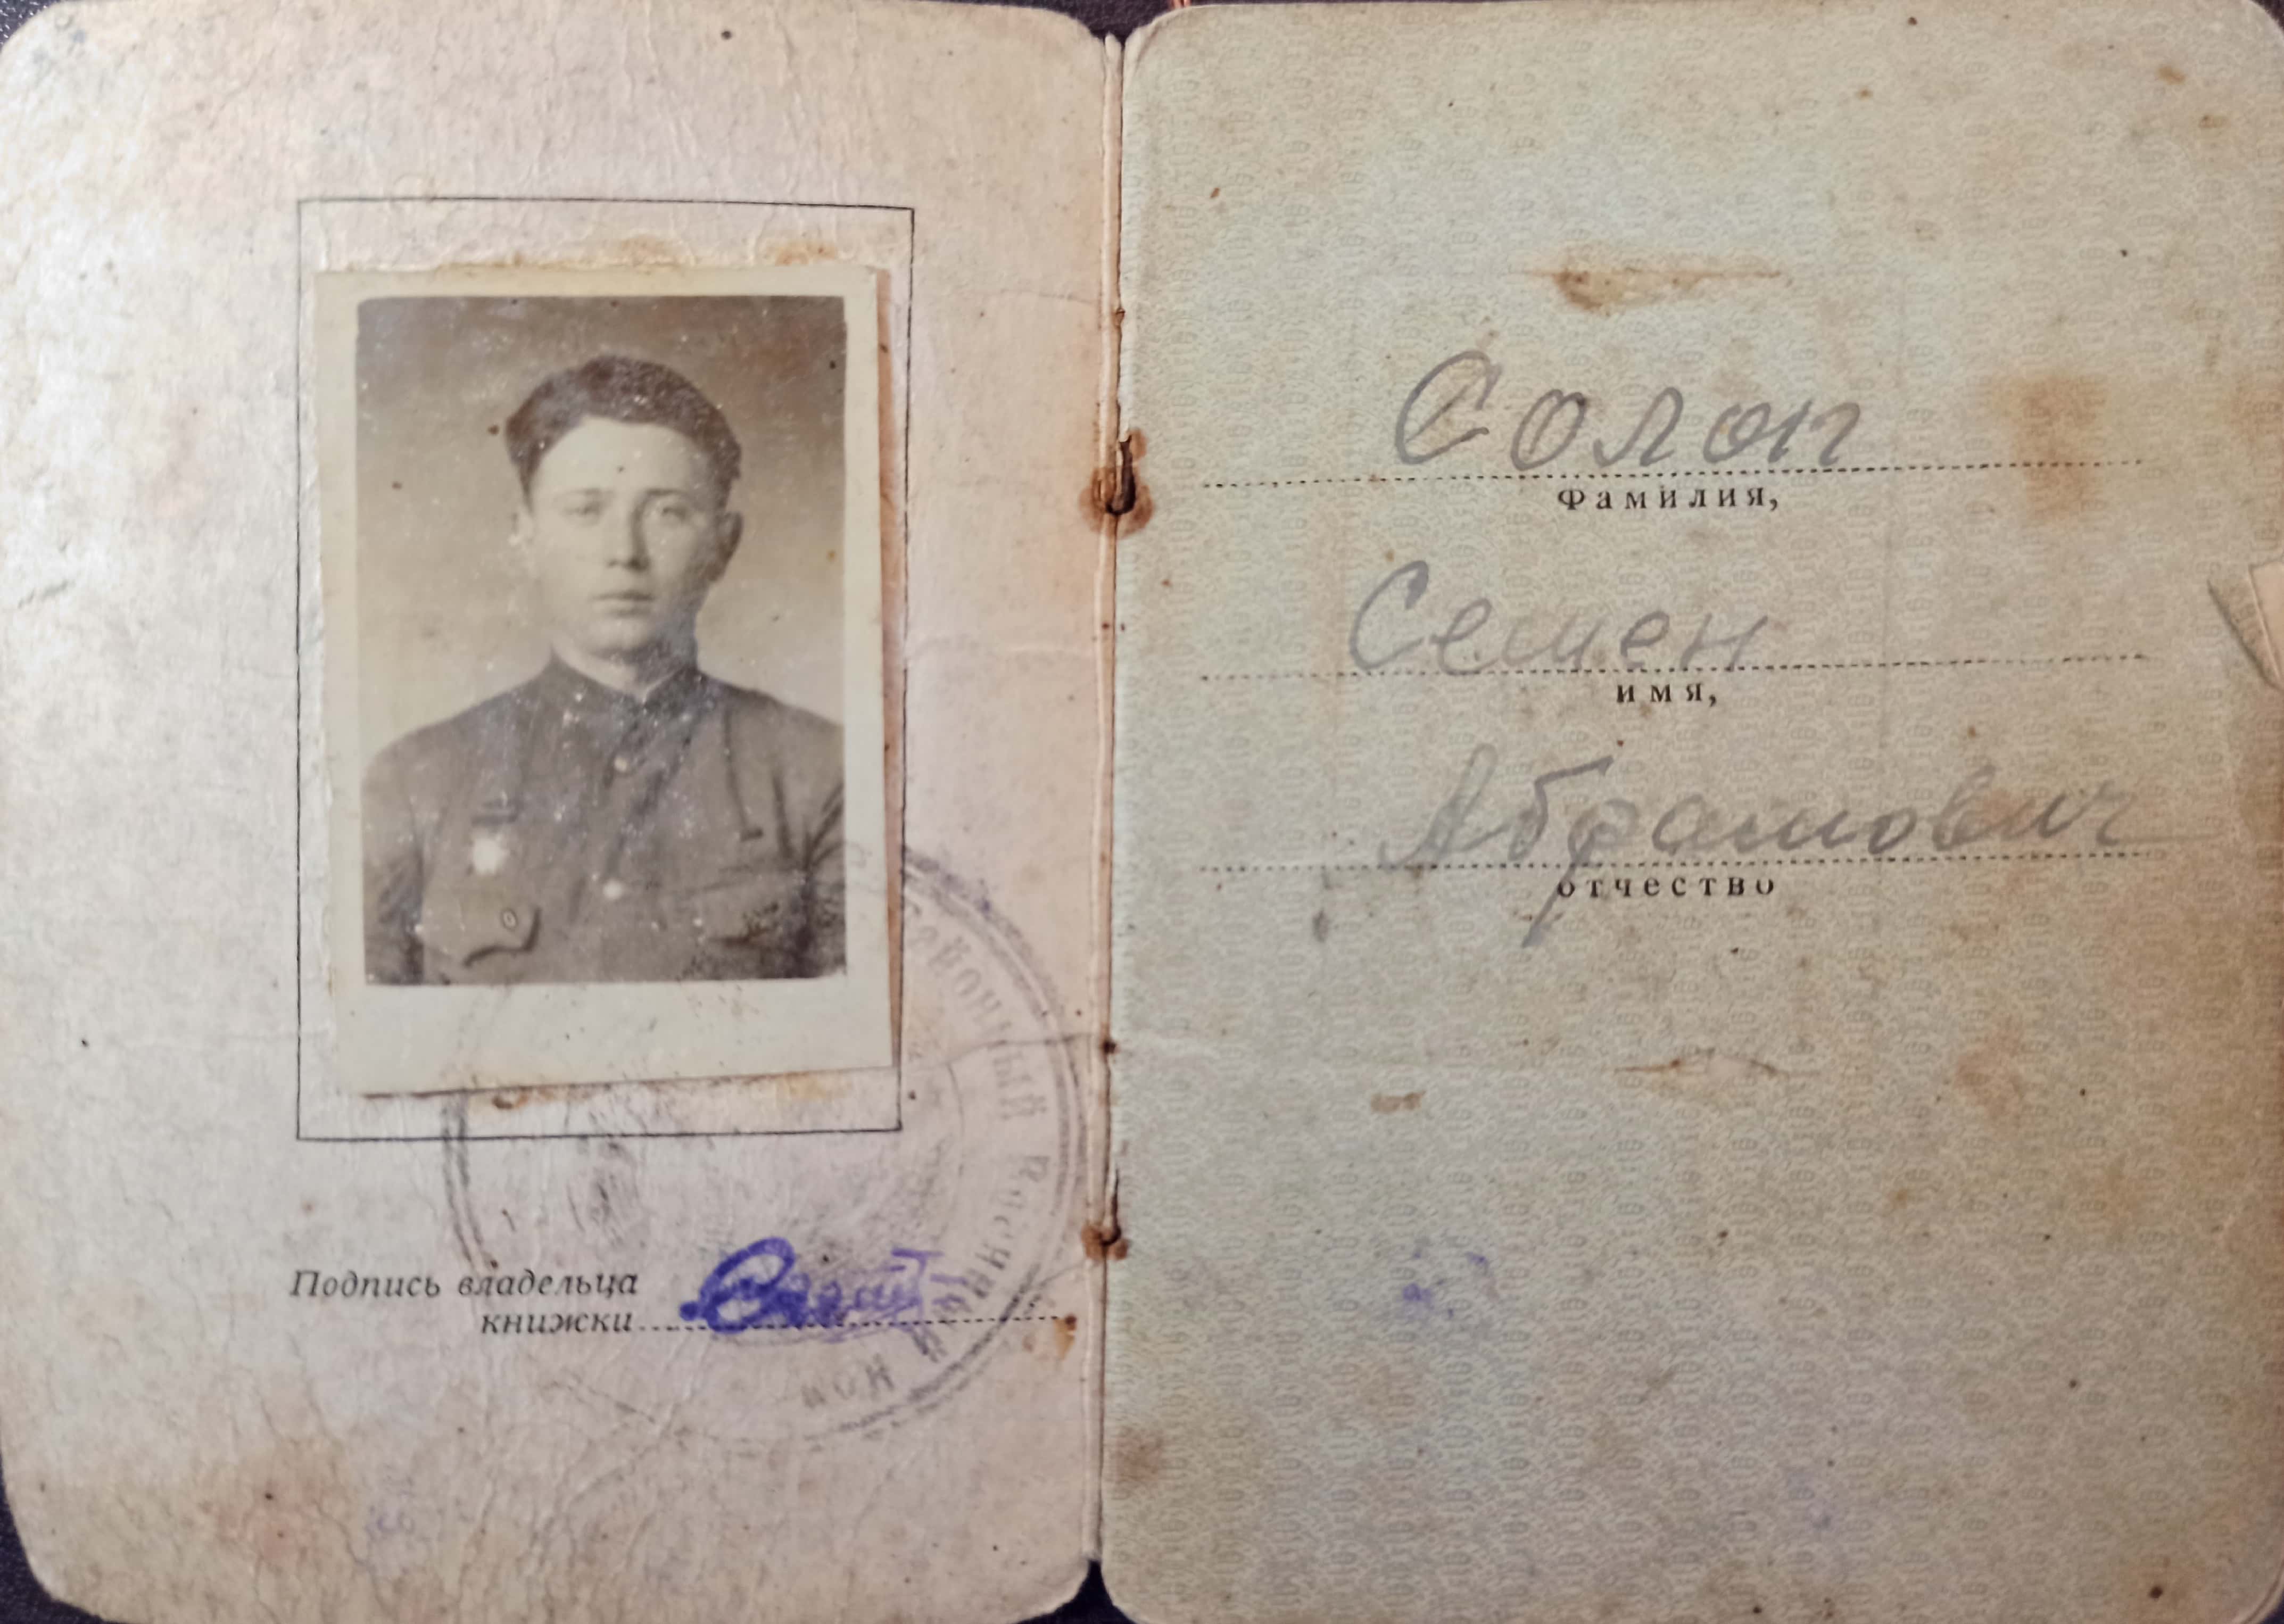 Подпись владельца
книжки
Солоп
фамилия,
Семен
имя,
Абрамович
отчество